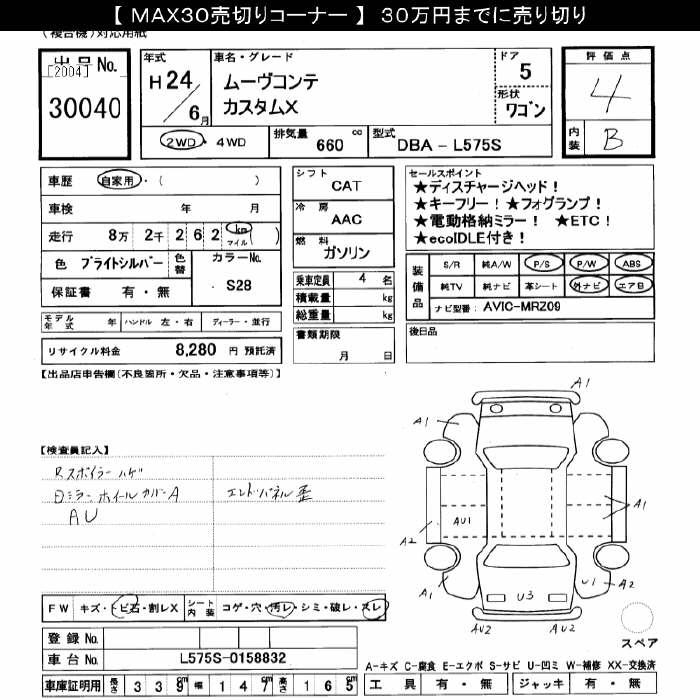 【 MAX30売切りコーナー 】 30万円までに売り切り
(複合機)対応用紙
出品No.
[2004]
30040
年式
H24/6月
車名・グレード
ムーヴコンテ
カスタムX
ドア
5
形状
ワゴン
評価点
4
内装
B
2WD・4WD
排気量 660 cc
型式 DBA - L575S
車歴 自家用・( )
車検 年 月
走行 8万 2千 2 6 2 km マイル ( )
色 ブライトシルバー 色替 カラーNo. S28
保証書 有・無
モデル年式 年 ハンドル 左・右 ディーラー・並行
リサイクル料金 8,280 円 預託済
シフト
CAT
冷房
AAC
燃料
ガソリン
乗車定員 4 名
積載量 kg
総重量 kg
書類期限
月 日
セールスポイント
★ディスチャージヘッド!
★キーフリー! ★フォグランプ!
★電動格納ミラー! ★ETC!
★ecoIDLE付き!
装備品
S/R 純A/W P/S P/W ABS
純TV 純ナビ 革シート 外ナビ エアB
ナビ型番: AVIC-MRZ09
後日品
【出品店申告欄(不良箇所・欠品・注意事項等)】
【検査員記入】
Rスポイラーハゲ
ミラー ホイールカバーA
エンドパネル歪
AU
A1
A1
A1
AU1
A2
A1
U1
A2
U3
AU2
AU2
スペア
FW キズ・トビ石・割レX
シート内装 コゲ・穴・汚レ・シミ・破レ・スレ
登録No.
車台No. L575S-0158832
車庫証明用 長さ 3 3 9 cm 幅 1 4 7 cm 高さ 1 6 5 cm
A-キズ C-腐食 E-エクボ S-サビ U-凹ミ W-補修 XX-交換済
工具 有・無 ジャッキ 有・無